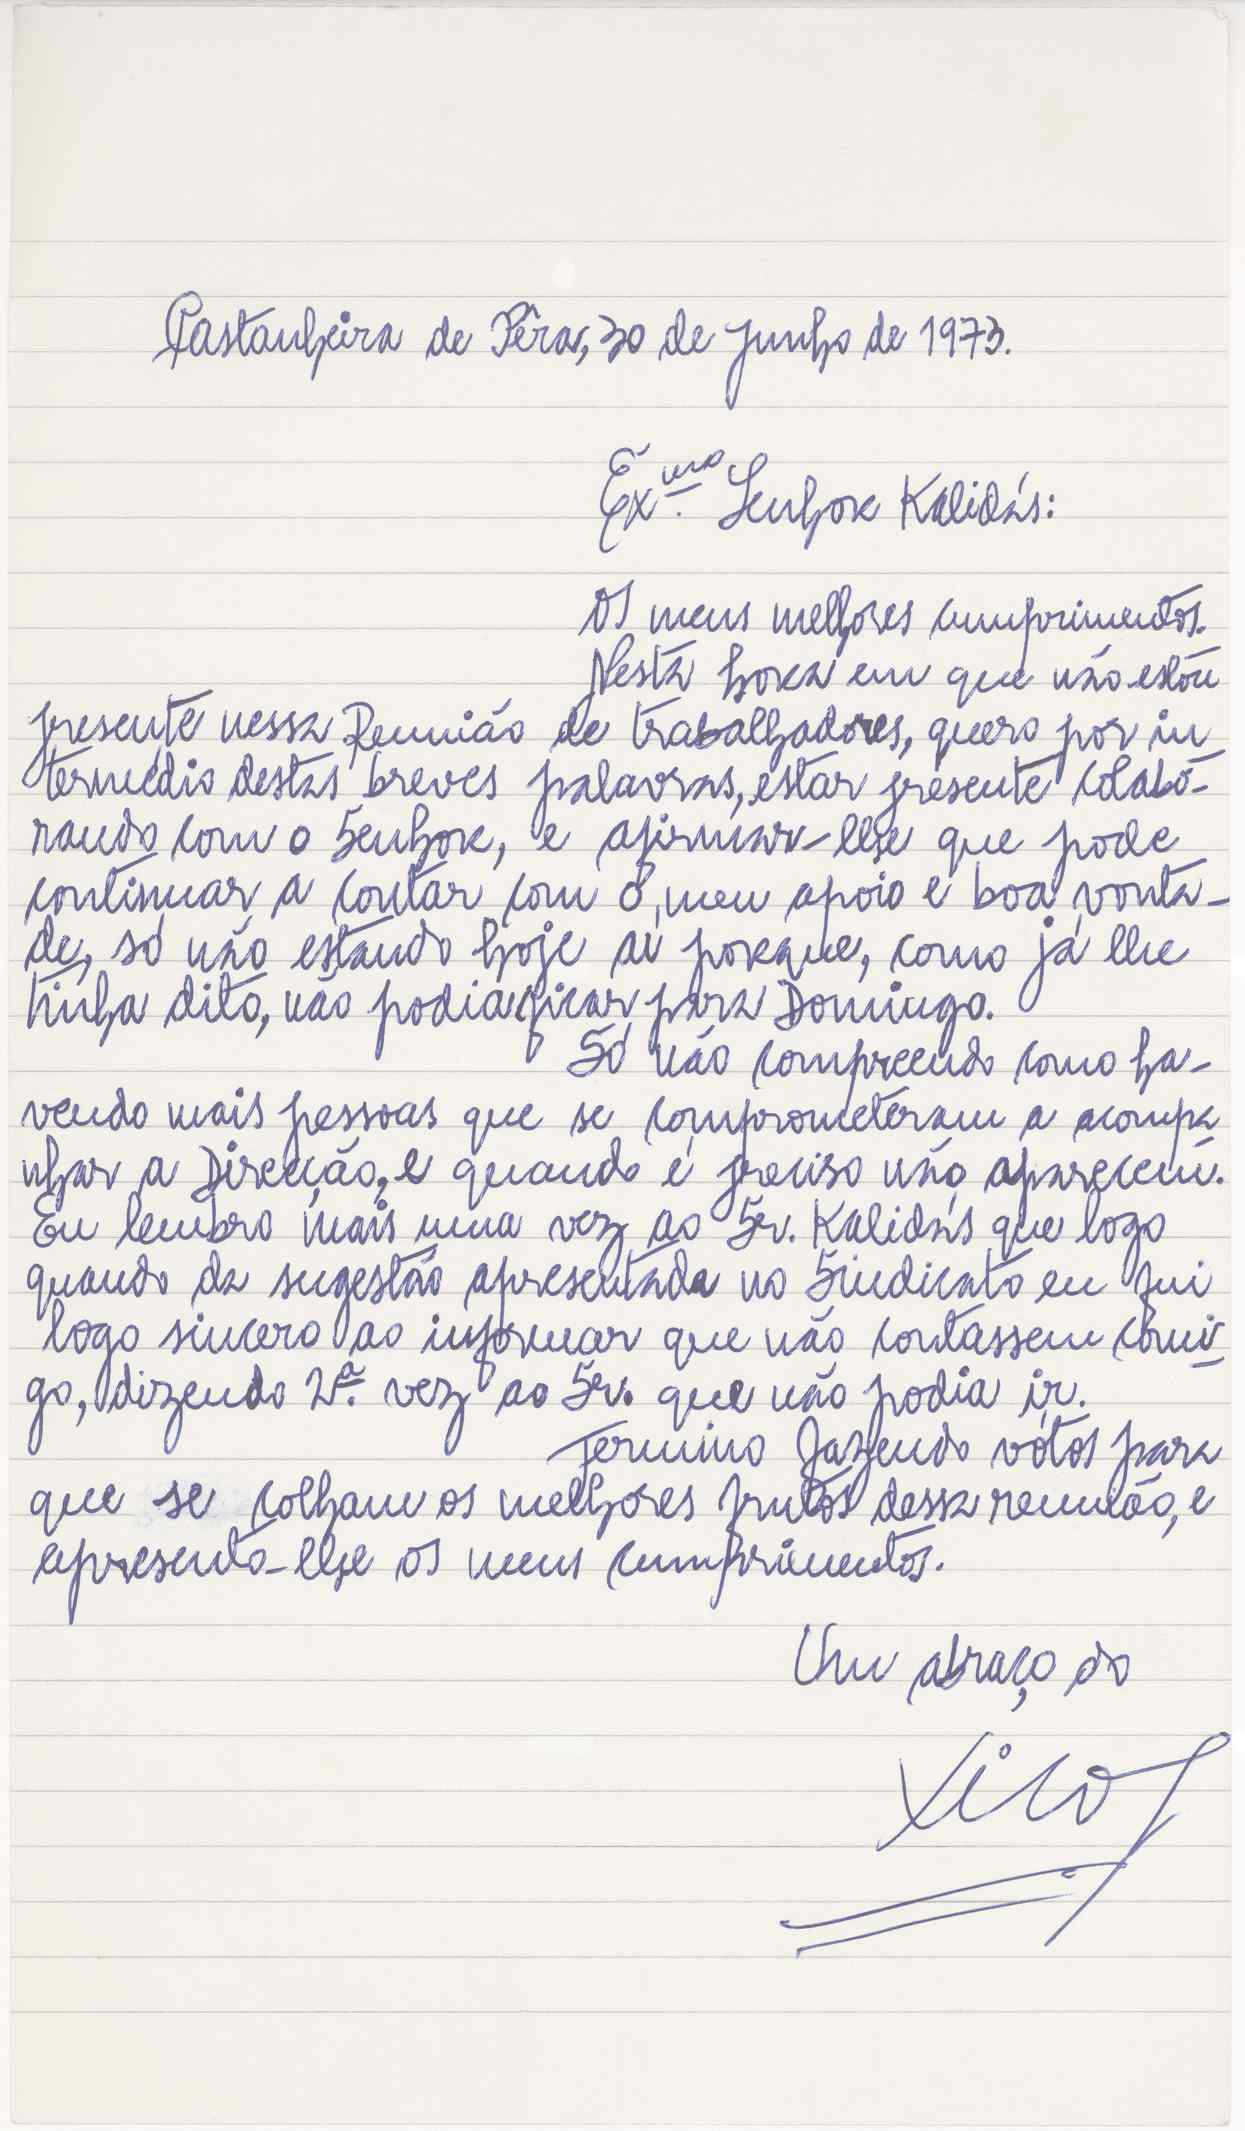 Castanheira de Pêra, 30 de Junho de 1973.
Exmo. Senhor Kalidás:
Os meus melhores cumprimentos.
Nesta hora em que não estou
presente nessa Reunião de trabalhadores, quero por in
termédio destas breves palavras, estar presente colabo-
rando com o Senhor, e afirmar-lhe que pode
continuar a contar com o meu apoio e boa vonta-
de, só não estando hoje aí porque, como já lhe
tinha dito, não podia ficar para Domingo.
Só não compreendo como ha-
vendo mais pessoas que se comprometeram a acompa
nhar a Direcção, e quando é preciso não aparecem.
Eu lembro mais uma vez ao Sr. Kalidás que logo
quando da sugestão apresentada no Sindicato eu fui
logo sincero ao informar que não contassem comi
go, dizendo 2ª. vez ao Sr. que não podia ir.
Termino fazendo vótos para
que se colham os melhores frutos dessa reunião, e
apresento-lhe os meus cumprimentos.
Um abraço do
Xico